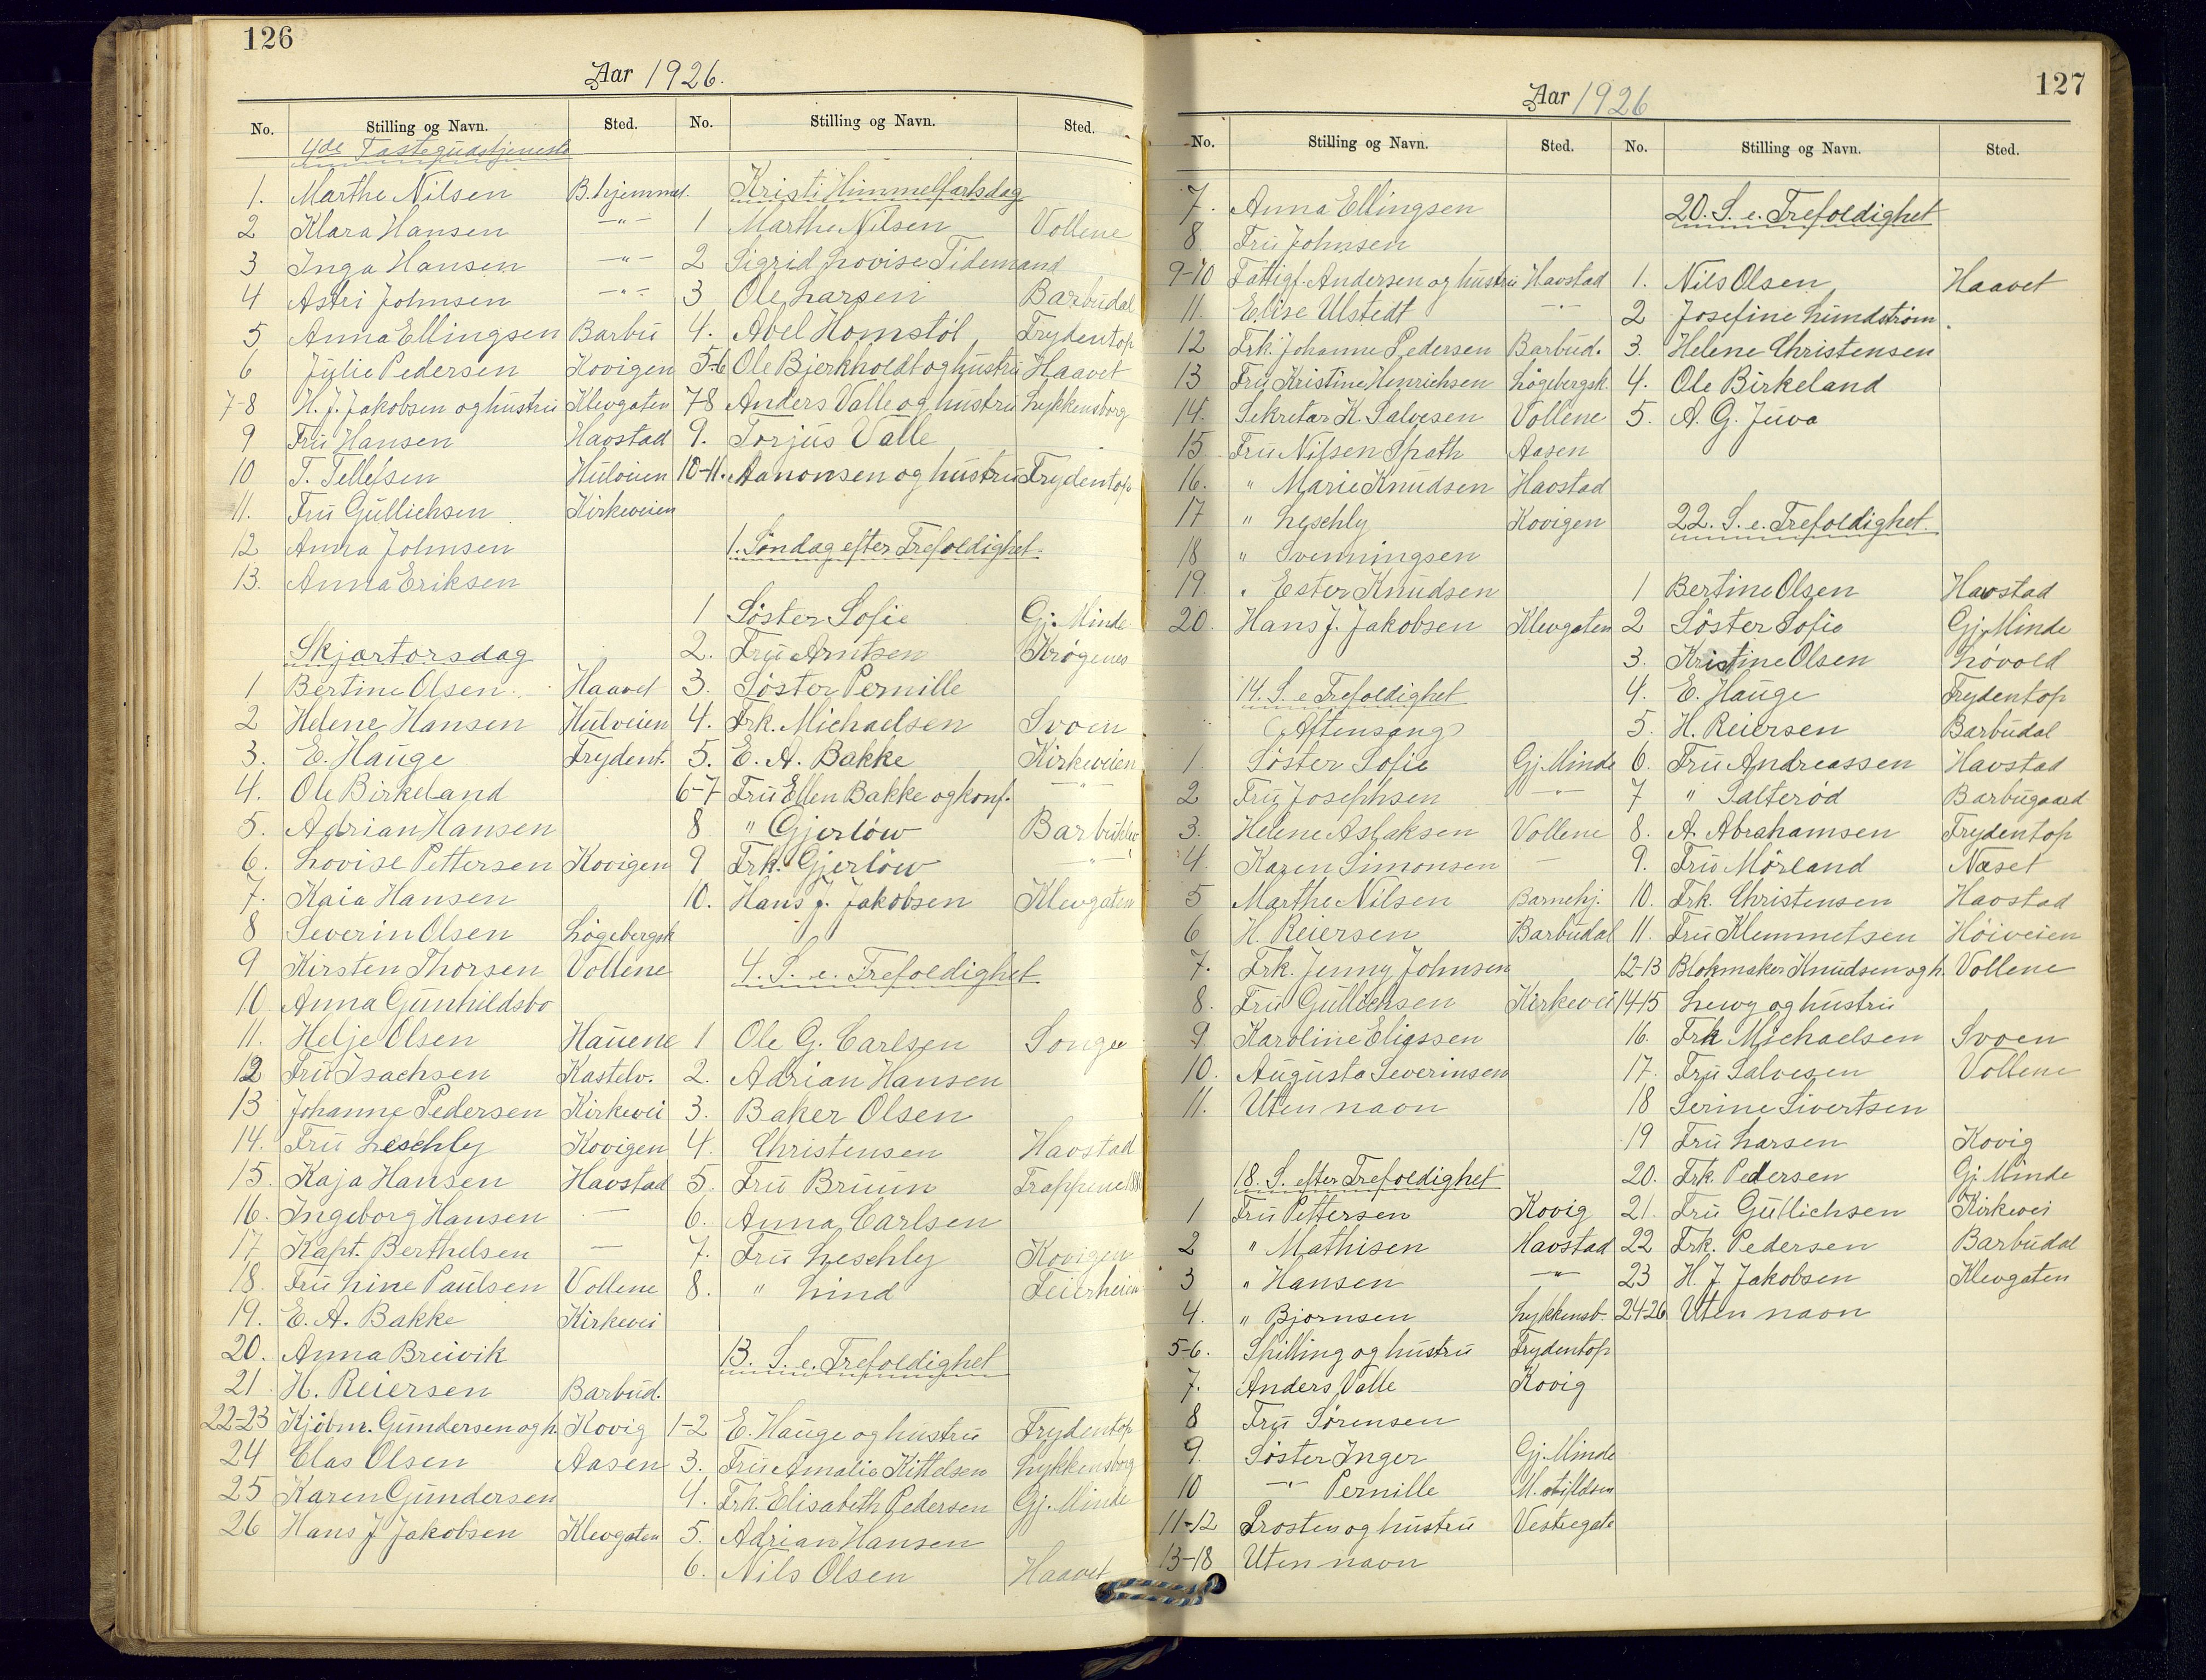 126
Aar 1926.
No. Stilling og Navn. Sted. No. Stilling og Navn. Sted.
4de Fastegudstjeneste
1. Marthe Nilsen B. hjemmet.
2 Klara Hansen —"—
3 Inga Hansen —"—
4 Astri Johnsen —"—
5 Anna Ellingsen Barbu
6 Julie Pedersen Kovigen
7-8 H. J. Jakobsen og hustru Klevgaten
9 Fru Hansen Havstad
10 T. Tellefsen Hulveien
11. Fru Gullichsen Kirkeveien
12 Anna Johnsen
13. Anna Eriksen
Skjærtorsdag
1 Bertine Olsen Haavet
2 Helene Hansen Hulveien
3. E. Hauge Frydent.
4. Ole Birkeland
5. Adrian Hansen
6. Lovise Pettersen Kovigen
7. Kaia Hansen
8 Severin Olsen Lögebergsk
9 Kirsten Thorsen Vollene
10. Anna Gunhildsbo
11. Helje Olsen Hauene
12 Fru Isachsen Kastelv.
13 Johanne Pedersen Kirkevei
14. Fru Leschly Kovigen
15. Kaja Hansen Havstad
16. Ingeborg Hansen —
17 Kapt. Berthelsen —
18. Fru Line Paulsen Vollene
19. E. A. Bakke Kirkevei
20. Anna Breivik
21. H. Reiersen Barbud.
22-23 Kjöbm. Gundersen og h. Kovig
24 Clas Olsen Aasen
25 Karen Gundersen
26 Hans J Jakobsen Klevgaten
Kristi Himmelfartsdag
1 Marthe Nilsen Vollene
2 Sigrid Lovise Tidemand
3 Ole Larsen Barbudal
4. Abel Homstöl Frydentop
5-6 Ole Bjerkholdt og hustru Haavet
7-8 Anders Valle og hustru Lykkensborg
9. Torjus Valle
10-11. Aanonsen og hustru Frydentop
1. Söndag efter Trefoldighet.
1 Söster Sofie Gj. Minde
2. Fru Arntsen Krøgenes
3. Söster Pernille
4. Frk. Michaelsen Svoen
5. E. A. Bakke Kirkeveien
6-7 Fru Ellen Bakke og konf. —"—
8 " Gjerlöw
9 Frk. Gjerlöw —"—
10. Hans J. Jakobsen Klevgaten
4. S. e. Trefoldighet
1 Ole G. Carlsen Songe
2. Adrian Hansen
3. Baker Olsen
4. Christensen Havstad
5. Fru Bruun Trappene
6. Anna Carlsen
7. Fru Leschly Kovigen
8. " Lind Feierheien
13. S. e. Trefoldighet
1-2 E. Hauge og hustru Frydentop
3. Fru Amalie Kittelsen Lykkensborg
4. Frk. Elisabeth Pedersen Gj. Minde
5. Adrian Hansen
6. Nils Olsen Haavet
127
Aar 1926
No. Stilling og Navn. Sted. No. Stilling og Navn. Sted.
7. Anna Ellingsen
8 Fru Johnsen
9-10 Fattigf. Andersen og hustru Havstad
11. Elise Ulstedt —"—
12 Frk. Johanne Pedersen Barbud.
13 Fru Kristine Henrichsen Lögebergsk.
14. Sekretær K. Salvesen Vollene
15. Fru Nilsen Spath Aasen
16. " Marie Knudsen Havstad
17 " Leschly Kovigen
18 " Svenningsen
19. " Ester Knudsen
20. Hans J. Jakobsen Klevgaten
14. S. e Trefoldighet
(Aftensang)
1. Söster Sofie Gj. Minde
2 Fru Josephsen —"—
3. Helene Aslaksen Vollene
4. Karen Simonsen —
5 Marthe Nilsen Barnehj.
6 H. Reiersen Barbudal
7. Frk. Jenny Johnsen
8. Fru Gullichsen Kirkevei
9 Karoline Eliassen
10. Augusta Severinsen
11. Uten navn
18. S. efter Trefoldighet
1 Fru Pettersen Kovig
2 " Mathisen Havstad
3 " Hansen —"—
4. " Bjørnsen Lykkensb.
5-6. Spilling og hustru Frydentop
7. Anders Valle Kovig
8 Fru Sørensen
9. Söster Inger Gj. Minde
10 —"— Pernille
11-12 Prosten og hustru Vestregate
13-18 Uten navn
20. S. e. Trefoldighet
1. Nils Olsen Haavet
2 Josefine Lundström.
3. Helene Christensen
4. Ole Birkeland
5. A. G. Juva
22. S. e. Trefoldighet.
1 Bertine Olsen Havstad
2 Söster Sofie Gj. Minde
3. Kristine Olsen Lövold
4. E. Hauge Frydentop
5. H. Reiersen Barbudal
6. Fru Andreassen Havstad
7 " Salterød Barbugaard
8. A. Abrahamsen Frydentop
9. Fru Mörland Næset
10. Frk. Christensen Havstad
11. Fru Klemmetsen Höiveien
12-13 Blokmaker Knudsen og h. Vollene
14-15 Lewy og hustru
16. Frk Michaelsen Svoen
17. Fru Salvesen Vollene
18 Serine Sivertsen
19 Fru Larsen Kovig
20. Frk. Pedersen Gj. Minde
21. Fru Gullichsen Kirkevei
22 Frk. Pedersen Barbudal
23 H. J. Jakobsen Klevgaten
24-26 Uten navn